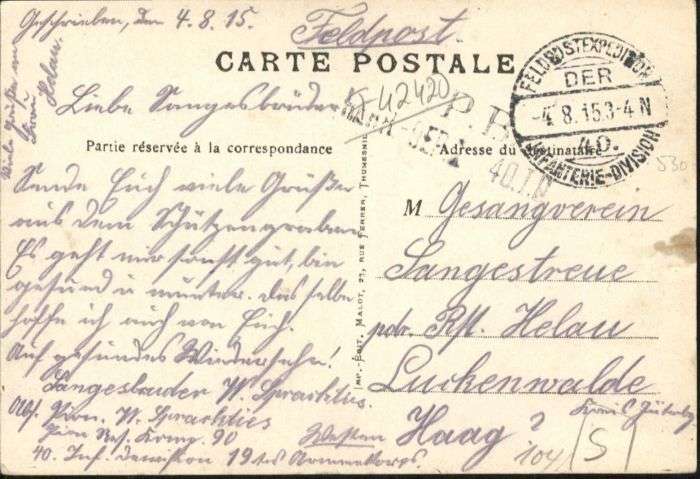 Geschrieben, den 4.8.15.
Feldpost.
CARTE POSTALE
42420
FELDPOSTEXPEDITION
DER
-4.8.15.3-4 N
40.
INFANTERIE-DIVISION
Viele Grüße an
Helau.
Liebe Sangesbrüder
Partie réservée à la correspondance
Adresse du Destinataire
P.B.
40.I.D.
530
Sende Euch viele Grüße
aus dem Schützengraben
Es geht mir sonst gut, bin
gesund u. munter. Das selbe
hoffe ich auch von Euch.
Auf gesundes Wiedersehn!
Sangesbruder W.
Abs. Pion. W.
Pion Res. Komp. 90
40. Inf. Division 19tes Armeekorps.
Westen
IMP.-EDIT. MALOT, 21, RUE FERRER, THUMESNIL
M Gesangverein
Sangestreue
Helau
Luckenwalde
Haag ?
104
S